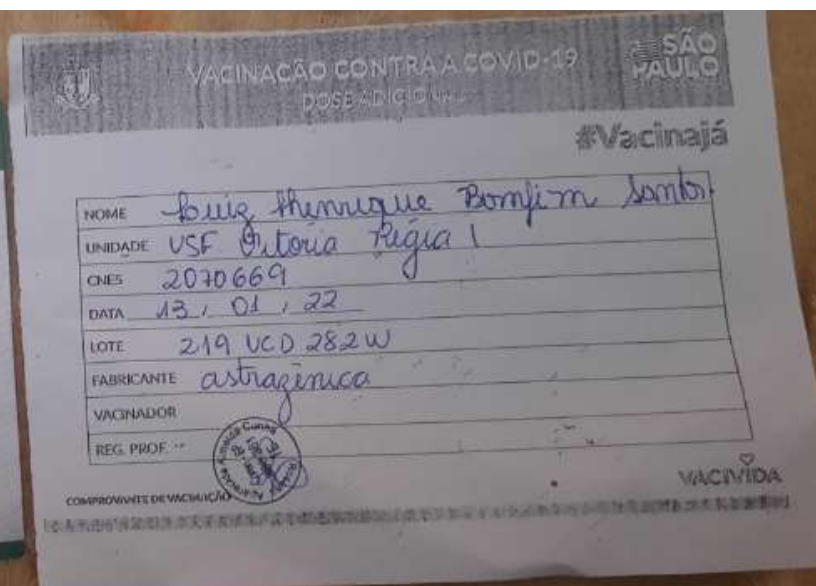 VACINAÇÃO CONTRA A COVID-19
DOSE ADICIONAL
SÃO
PAULO
#Vacinajá
NOME Luiz Henrique Bomfim Santos
UNIDADE USF Vitoria Régia I
CNES 2070669
DATA 13 / 01 / 22
LOTE 219 VCD 282W
FABRICANTE astrazênica
VACINADOR
REG. PROF.
COMPROVANTE DE VACINAÇÃO
VACIVIDA